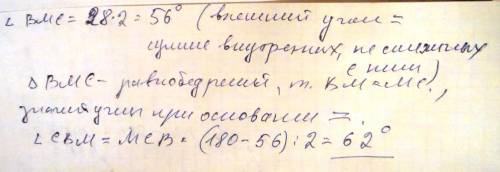 ∠ BMC = 28·2 = 56° (внешний угол =
сумме внутренних, не смежных
с ним)
Δ BMC - равнобедренный, т. BM = MC.,
значит углы при основании =.
∠ CBM = MCB = (180-56):2 = 62°